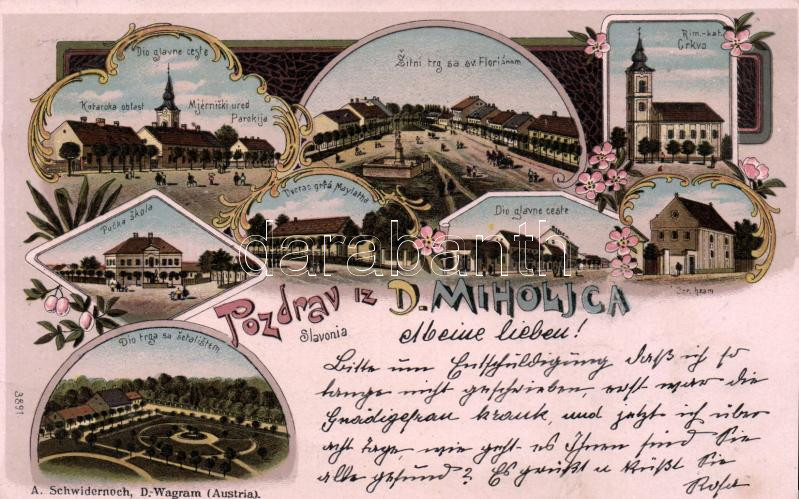 Dio glavne ceste
Kotarska oblast
Mjernički ured
Parokija
Žitni trg sa sv. Floriánom
Rim.-kat.
Crkva
Pučka škola
Dvorac grfa Maylatha
Dio glavne ceste
Izr. hram
darabanth
Pozdrav iz D. Miholjca
Slavonia
Meine lieben!
Bitte um Entschuldigung daß ich so
lange nicht geschrieben, erst war die
Gnädigefrau krank, und jetzt ich über
acht Tage, wie geht es Ihnen sind Sie
alle gesund? Es grüßt u küßt Sie
Rosa
Dio trga sa šetalištem
3891
A. Schwidernoch, D.-Wagram (Austria).